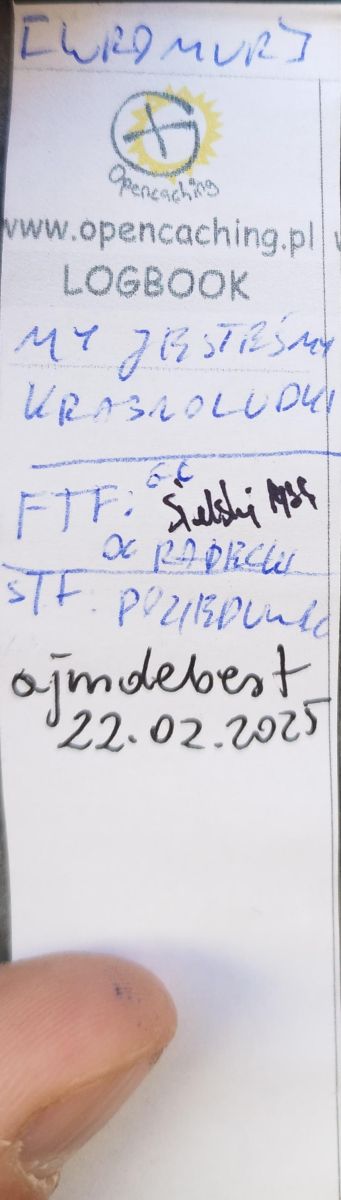 [WRDMUR]
Opencaching
www.opencaching.pl
LOGBOOK
MY JESTEŚMY
KRASNOLUDKI
GC
FTF: Sielski 1935
OC RADECW
STF: POZIEDUNK
ajmdebest
22.02.2025